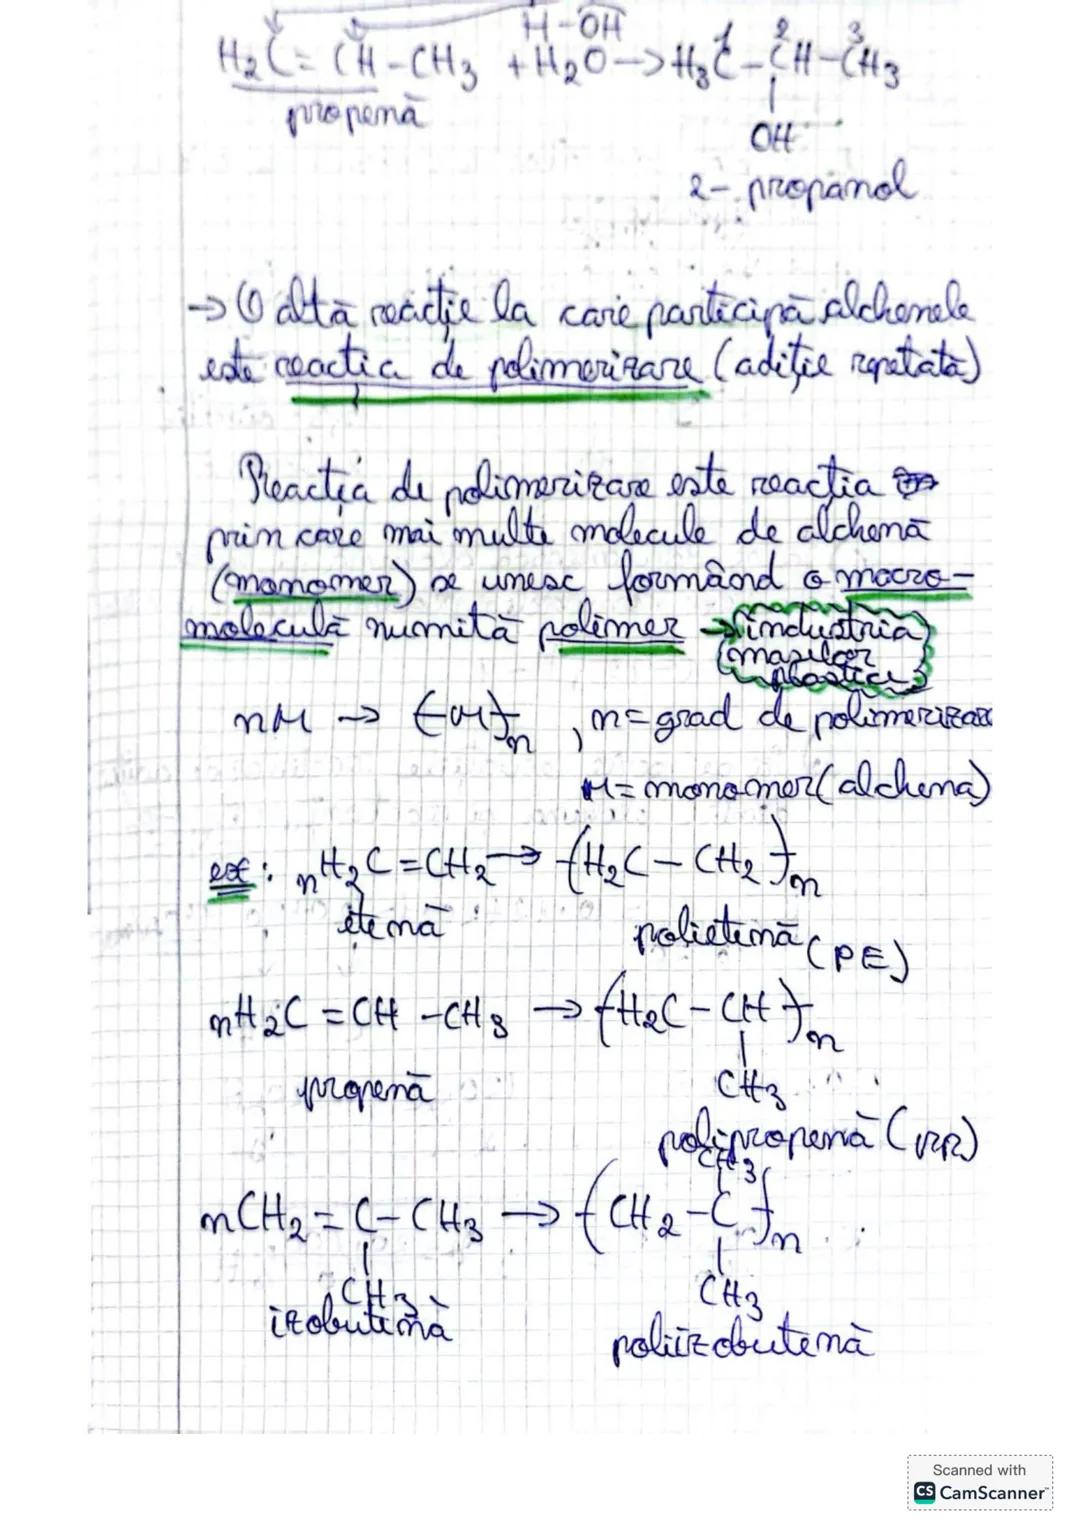 H-OH
H₂C=CH-CH₃ +H₂O→H₃C-CH-CH₃
1 2 3
propenă
OH
2-propanol
→ O altă reacție la care participă alchenele
este reactia de polimerizare (adiție repetată)
Reacția de polimerizare este reacția
prin care mai multe molecule de alchenă
(monomer) se unesc formând o macro-
moleculă numită polimer → industria
maselor
plastice
nM → (-M-)n , n=grad de polimerizare
M=monomer(alchena)
ex: nH₂C=CH₂→ (-H₂C-CH₂-)n
etenă polietenă (PE)
nH₂C=CH-CH₃ → (-H₂C-CH-)n
CH₃
propenă
polipropenă (PP)
CH₃
nCH₂=C-CH₃ → (-CH₂-C-)n
CH₃ CH₃
izobutenă poliizobutenă
Scanned with
CS CamScanner